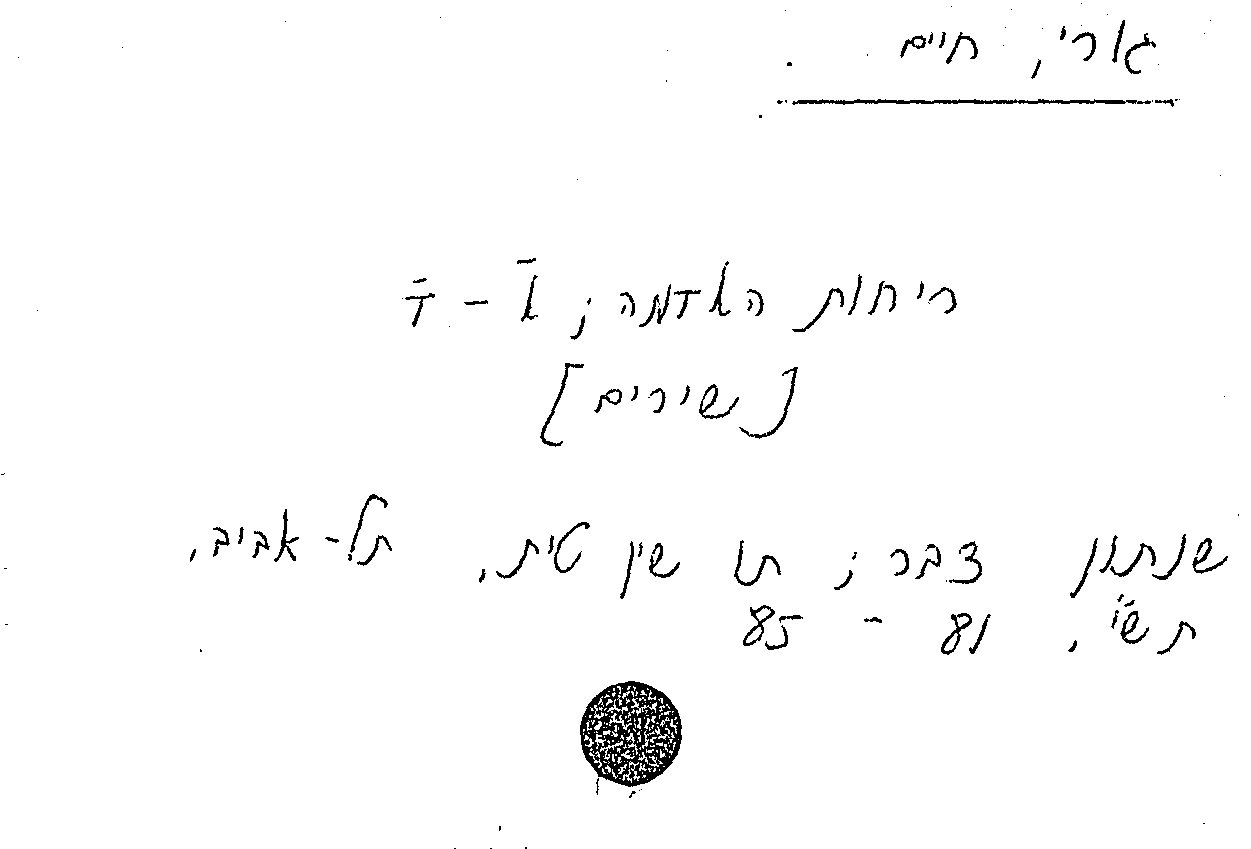 גורי, חיים
ריחות האדמה; א - ד
[שירים]
שנתון דבר; תו שין טית, תל-אביב,
תש"י, 81 - 85